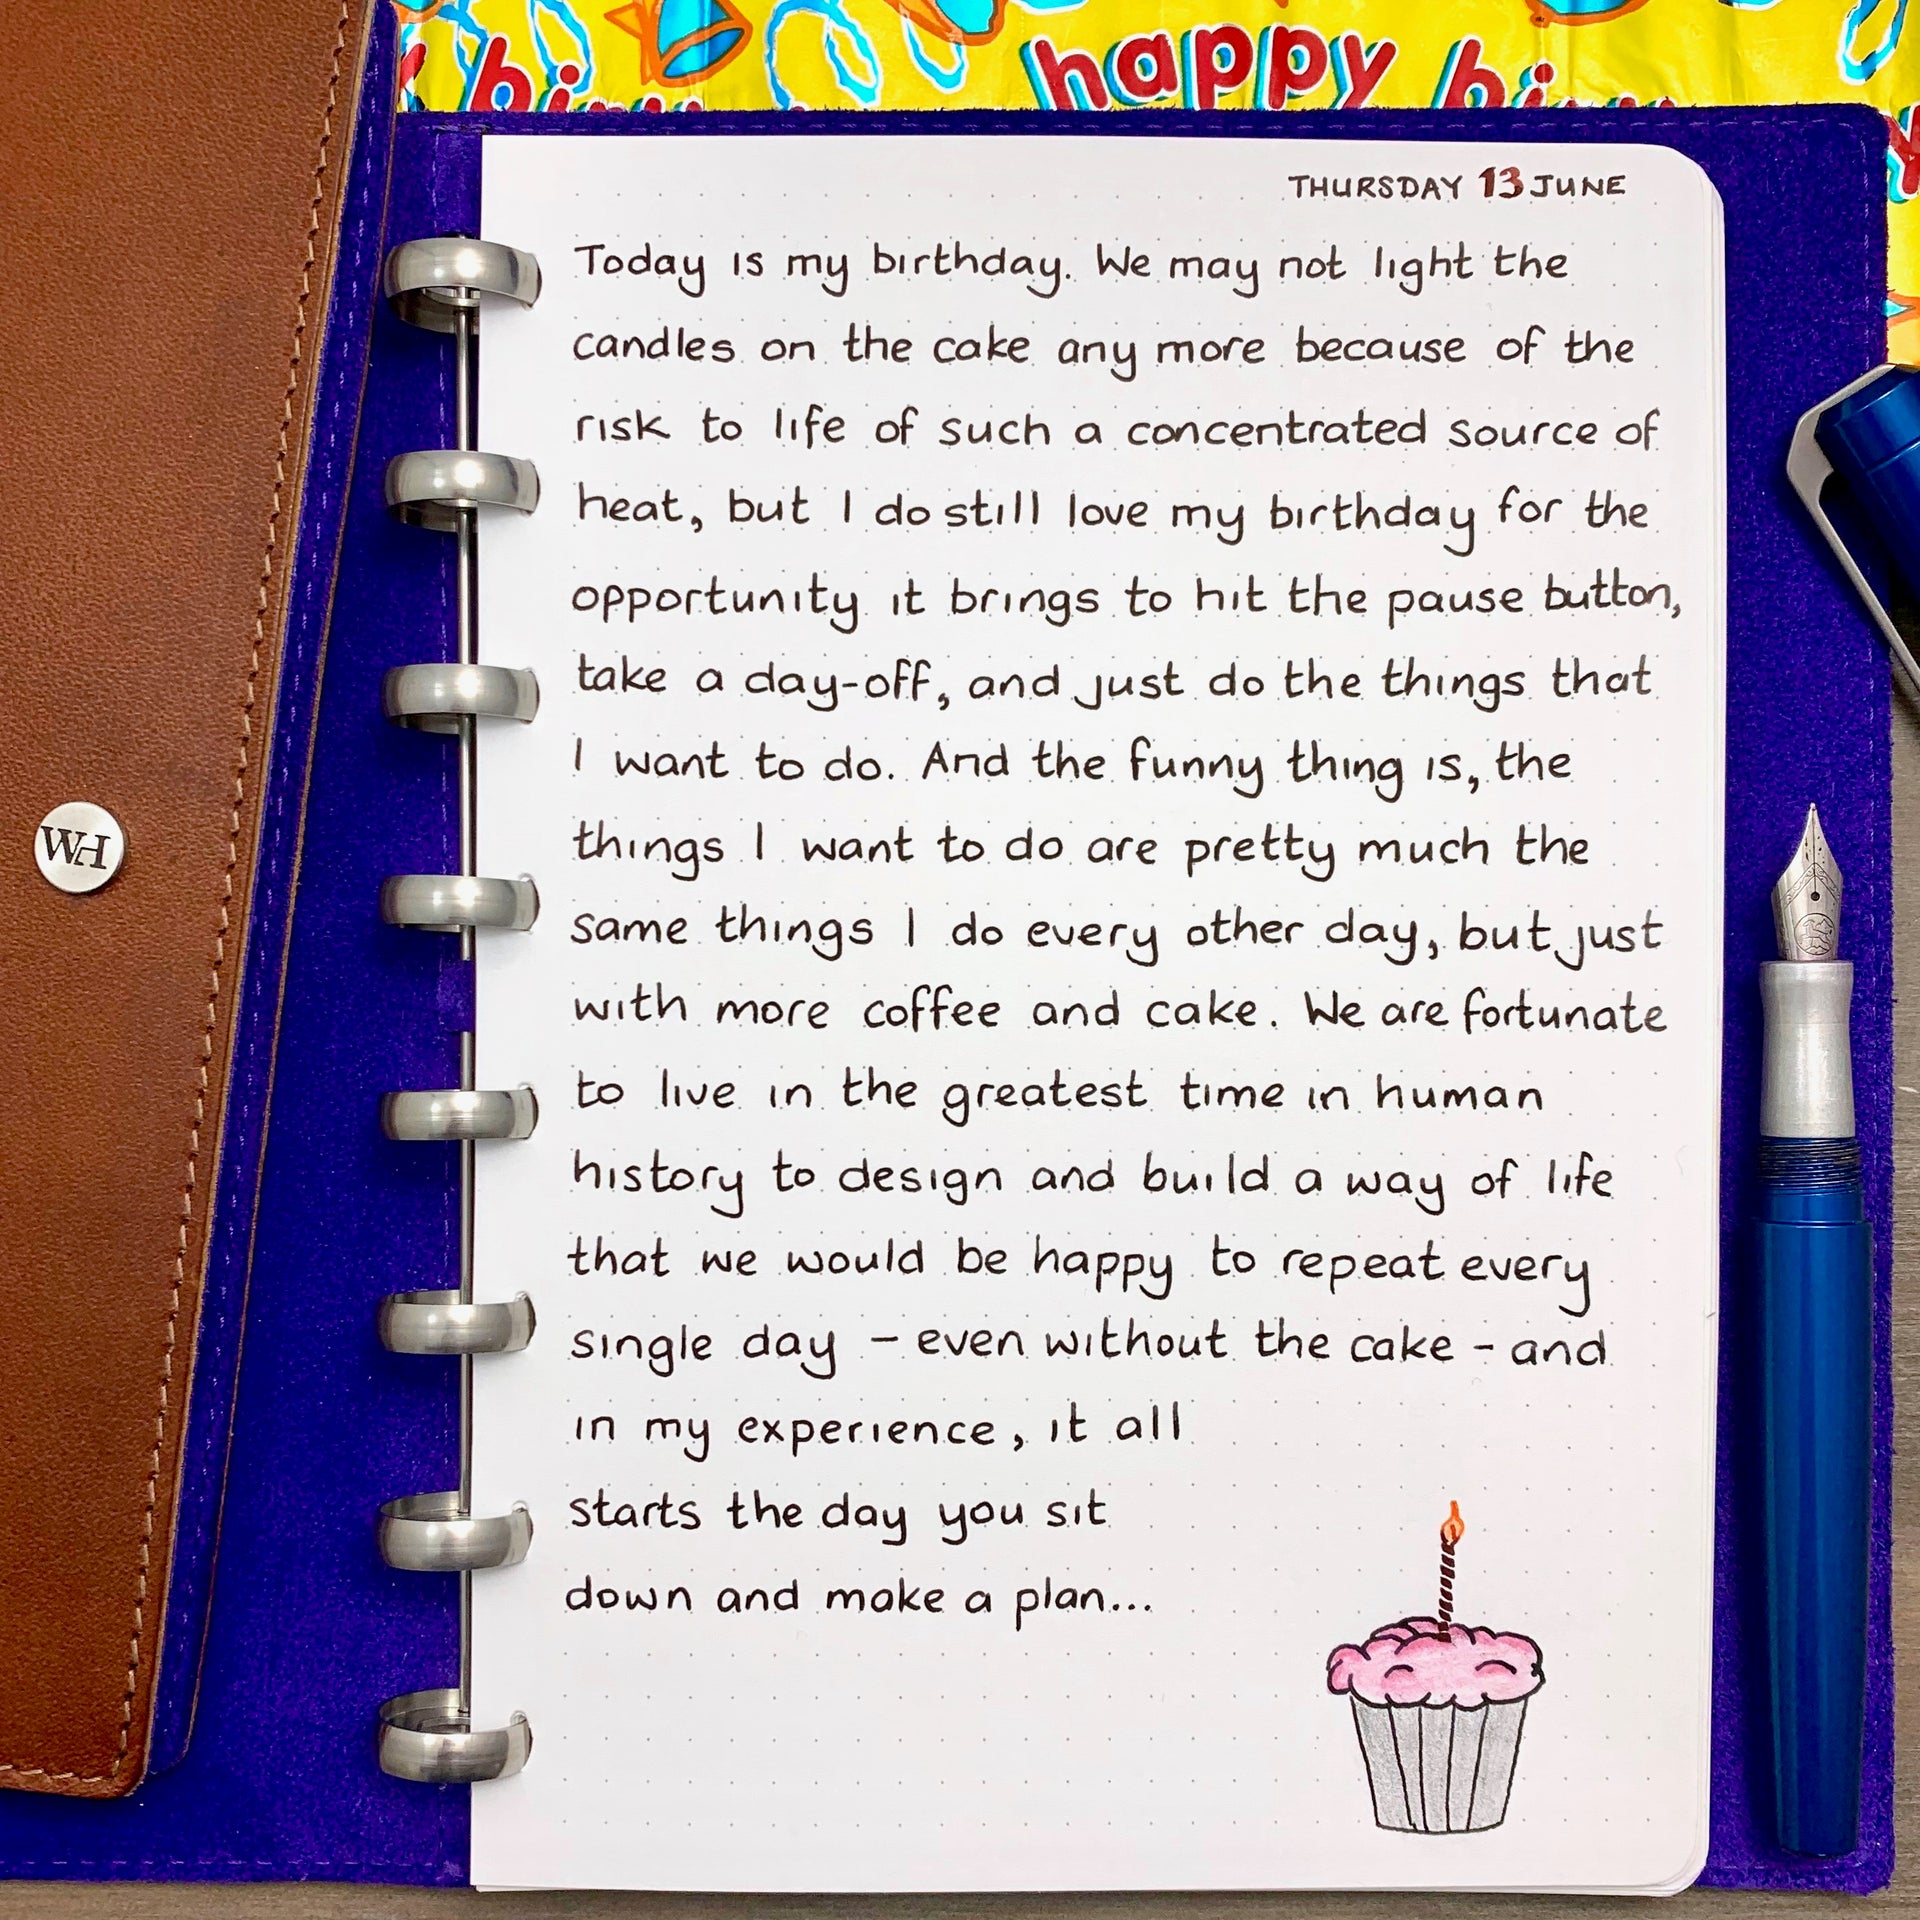 happy bi
bi
THURSDAY 13 JUNE
Today is my birthday. We may not light the
candles on the cake any more because of the
risk to life of such a concentrated source of
heat, but I do still love my birthday for the
opportunity it brings to hit the pause button,
take a day-off, and just do the things that
I want to do. And the funny thing is, the
things I want to do are pretty much the
same things I do every other day, but just
with more coffee and cake. We are fortunate
to live in the greatest time in human
history to design and build a way of life
that we would be happy to repeat every
single day – even without the cake – and
in my experience, it all
starts the day you sit
down and make a plan...
WH